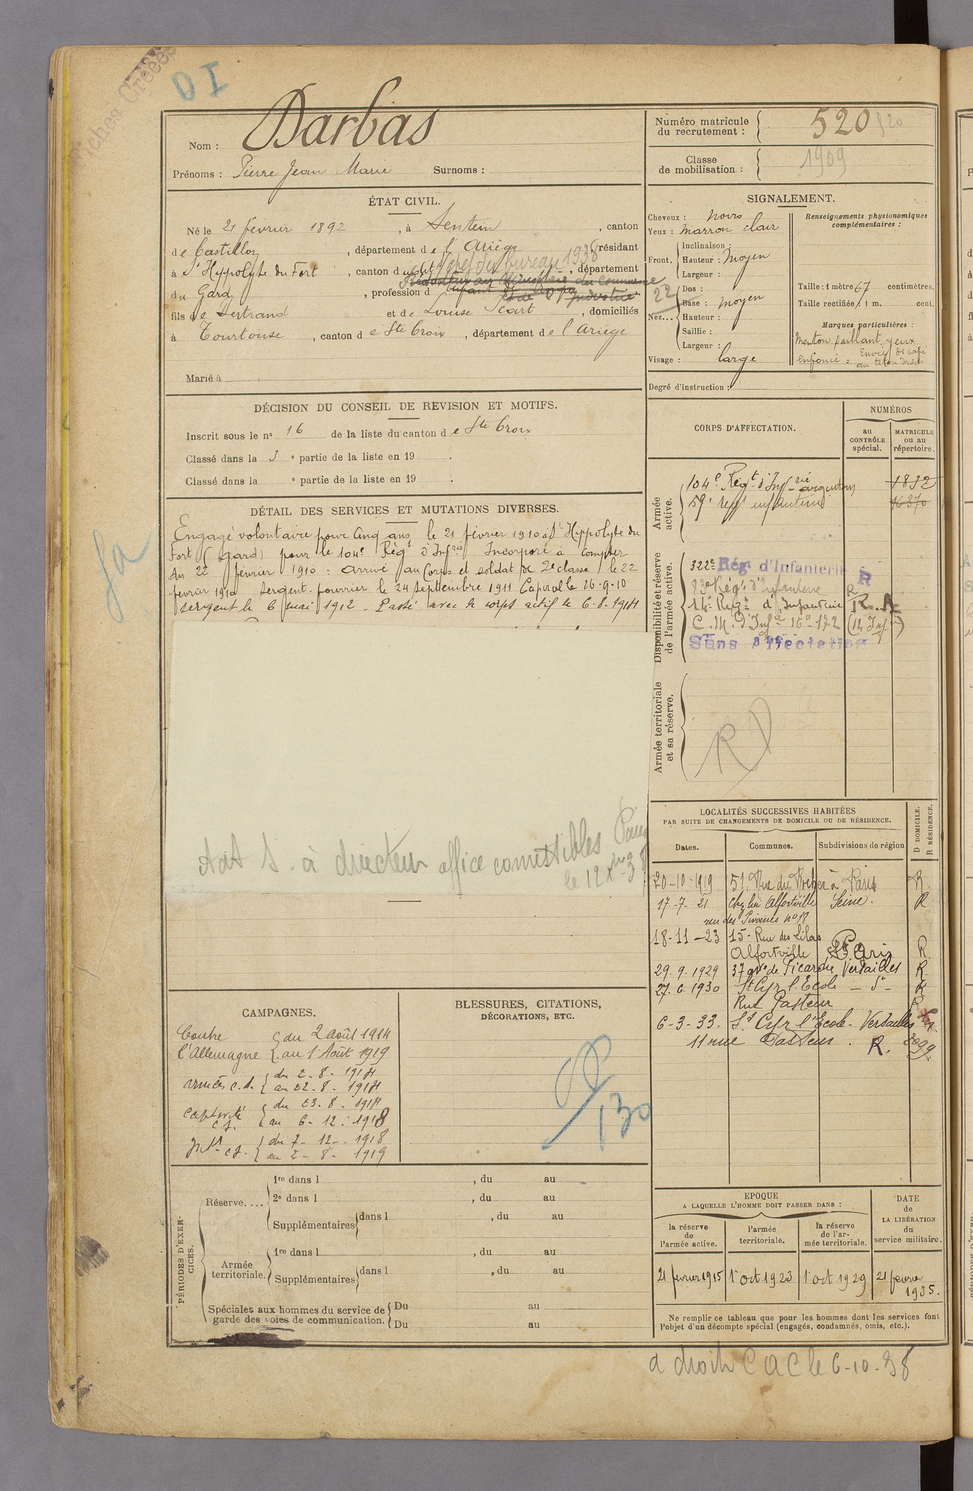 iches Créées
DI
Nom : Darbas
Prénoms : Pierre Jean Marie Surnoms :
Numéro matricule du recrutement : 520
Classe de mobilisation : 1909
ÉTAT CIVIL.
Né le 21 février 1892, à Sentein, canton
de Castillon, département de l'Ariège, résidant
à St Hippolyte du Fort, canton du dit, département
du Gard, profession d
chef de bureau 1938
fils de Bertrand et de Louise Cart, domiciliés
à Tourtouse, canton de Ste Croix, département de l'Ariège
Marié à
SIGNALEMENT.
Cheveux : noirs
Yeux : marron clair
Front. Inclinaison :
Hauteur : moyen
Largeur :
22
Nez... Dos :
Base : moyen
Hauteur :
Saillie :
Largeur :
Visage : large
Renseignements physionomiques complémentaires :
Taille : 1 mètre 67 centimètres.
Taille rectifiée : 1 m. cent.
Marques particulières :
Menton saillant, yeux
enfoncés
Degré d'instruction :
DÉCISION DU CONSEIL DE REVISION ET MOTIFS.
Inscrit sous le n° 16 de la liste du canton de Ste Croix
Classé dans la 5e partie de la liste en 19 .
Classé dans la e partie de la liste en 19 .
DÉTAIL DES SERVICES ET MUTATIONS DIVERSES.
Engagé volontaire pour cinq ans, le 21 février 1910 à St Hippolyte du
Fort (Gard) pour le 104e Régt d'Infrie Incorporé à compter
du 22 février 1910 : arrivé au Corps et soldat de 2e classe le 22
février 1910 Sergent fourrier le 24 septembre 1911 Caporal le 26-9-10
sergent le 6 mai 1912 Passé avec le corps actif le 6-8-1914
à directeur office comestibles Paris
CORPS D'AFFECTATION.
NUMÉROS
au CONTRÔLE spécial.
MATRICULE ou au répertoire.
Armée active.
104e Régt d'Infrie Argentan 1832
59e regt infanterie
Disponibilité et réserve de l'armée active.
322e Rég. d'Infanterie R
83e Rég. d'Infanterie
14e Régt d'Infanterie
C. M. d'Infie 16e-172 (14 Inf)
Sans affectation
Armée territoriale et sa réserve.
LOCALITÉS SUCCESSIVES HABITÉES
PAR SUITE DE CHANGEMENTS DE DOMICILE OU DE RÉSIDENCE.
Dates. Communes. Subdivisions de région D DOMICILE. R RÉSIDENCE.
20-10-1919 51 Rue du à Paris R
17-7-21 Alfortville Seine. R
rue des
18-11-23 15 Rue des Lilas
Alfortville Paris R
29.9.1929 37 de Picardie Versailles R
27.6.1930 St Cyr l'Ecole - do - R
Rue Pasteur
6-3-33. St Cyr l'Ecole Versailles
11 rue Pasteur . R.
CAMPAGNES.
Contre du 2 août 1914
l'Allemagne au 1 Août 1919
armées c.d. du 2-8-1914
au 22-8-1914
captivité du 23-8-1914
au 6-12-1918
du 7-12-1918
au 2-8-1919
BLESSURES, CITATIONS,
DÉCORATIONS, ETC.
130
PÉRIODES D'EXERCICES.
Réserve....
1re dans l , du au
2e dans l , du au
Supplémentaires dans l , du au
Armée territoriale.
1re dans l , du au
Supplémentaires dans l , du au
Spéciales aux hommes du service de garde des voies de communication.
Du au
Du au
EPOQUE
A LAQUELLE L'HOMME DOIT PASSER DANS :
la réserve de l'armée active.
l'armée territoriale.
la réserve de l'armée territoriale.
DATE de LA LIBÉRATION du service militaire.
21 février 1915 1er oct 1923 1er oct 1929 21 février 1935.
Ne remplir ce tableau que pour les hommes dont les services font l'objet d'un décompte spécial (engagés, condamnés, omis, etc.).
a droit CAC le 6-10-38